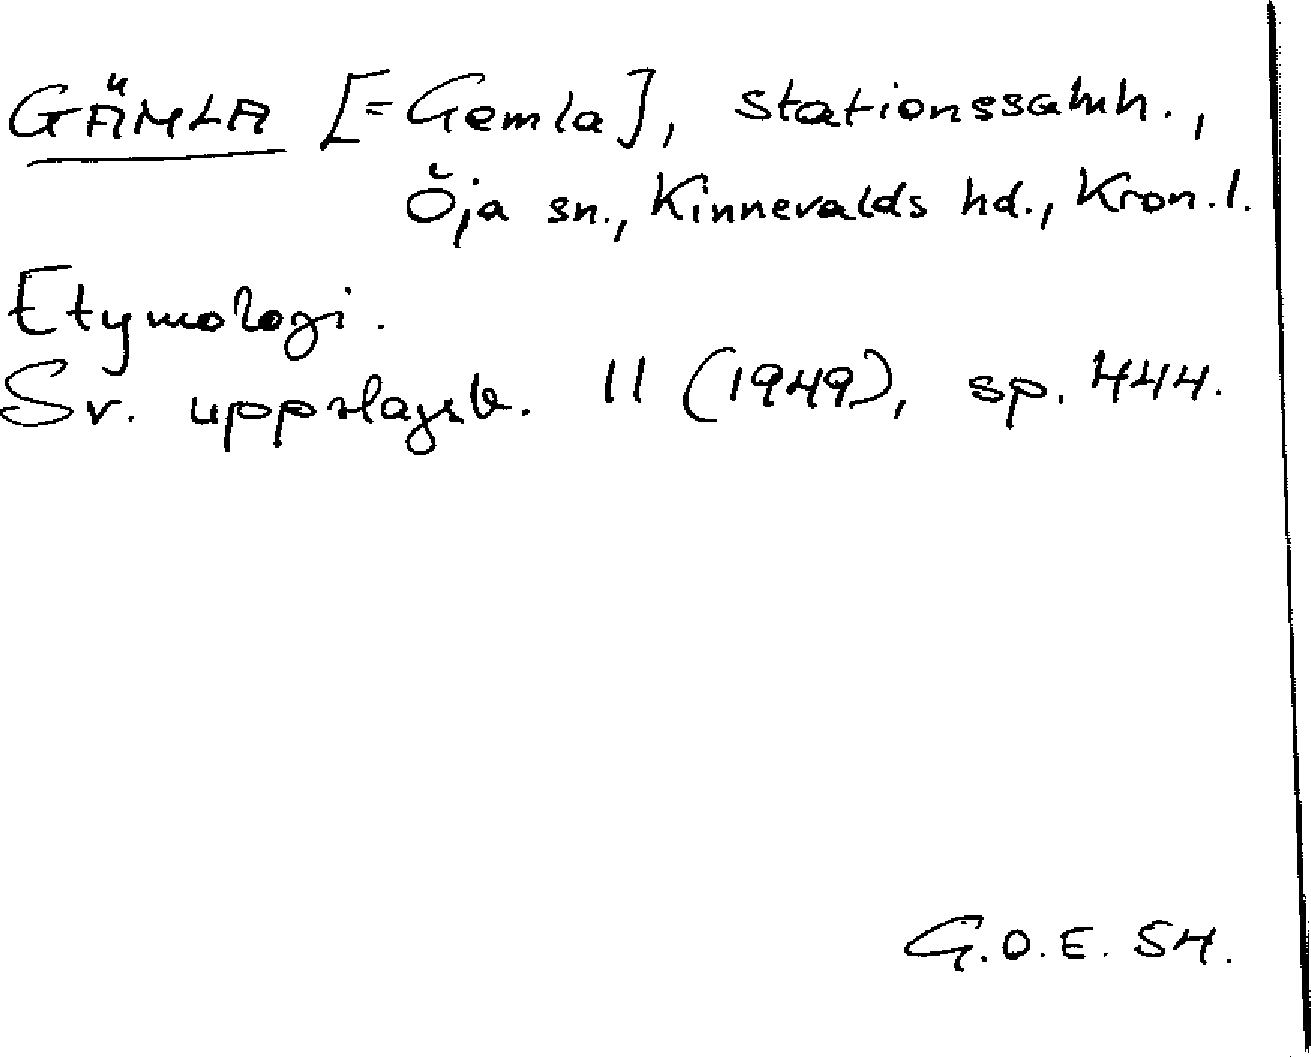 GÄMLA [=Gemla], stationssamh.,
Öja sn., Kinnevalds hd., Kron.l.
Etymologi.
Sv. uppslagsb. 11 (1949), sp. 444.
G.O.E. 54.